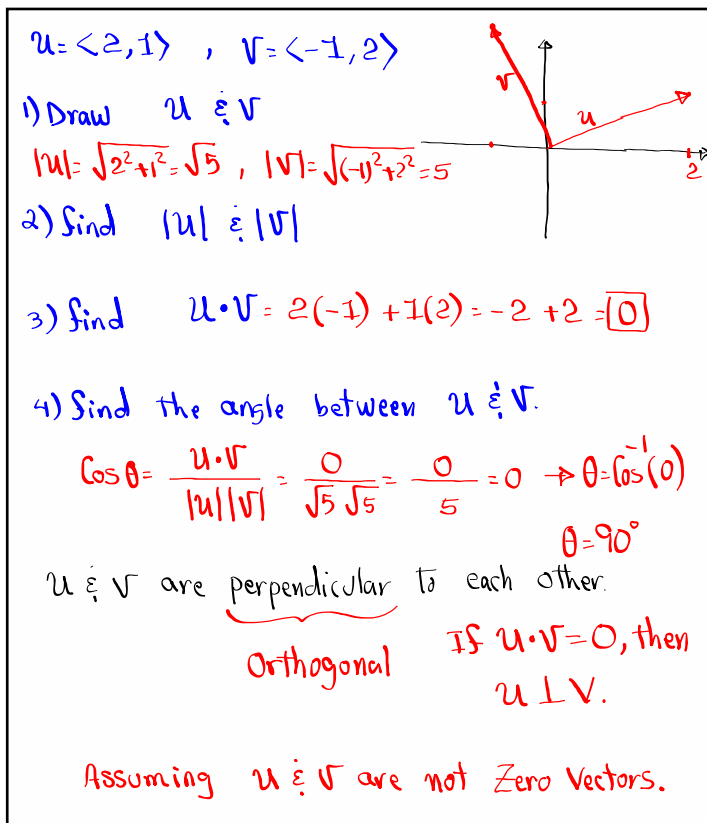 u=<2,1> , v=<-1,2>
1) Draw u & v
v
u
2
|u|=√(2²+1²)=√5 , |v|=√((-1)²+2²)=5
2) find |u| & |v|
3) find u·v = 2(-1) + 1(2) = -2 + 2 = 0
4) find the angle between u & v.
Cos θ = u·v / |u||v| = 0 / √5 √5 = 0 / 5 = 0 → θ = Cos⁻¹(0)
θ = 90°
u & v are perpendicular to each other.
Orthogonal
If u·v = 0, then
u ⊥ v.
Assuming u & v are not Zero Vectors.